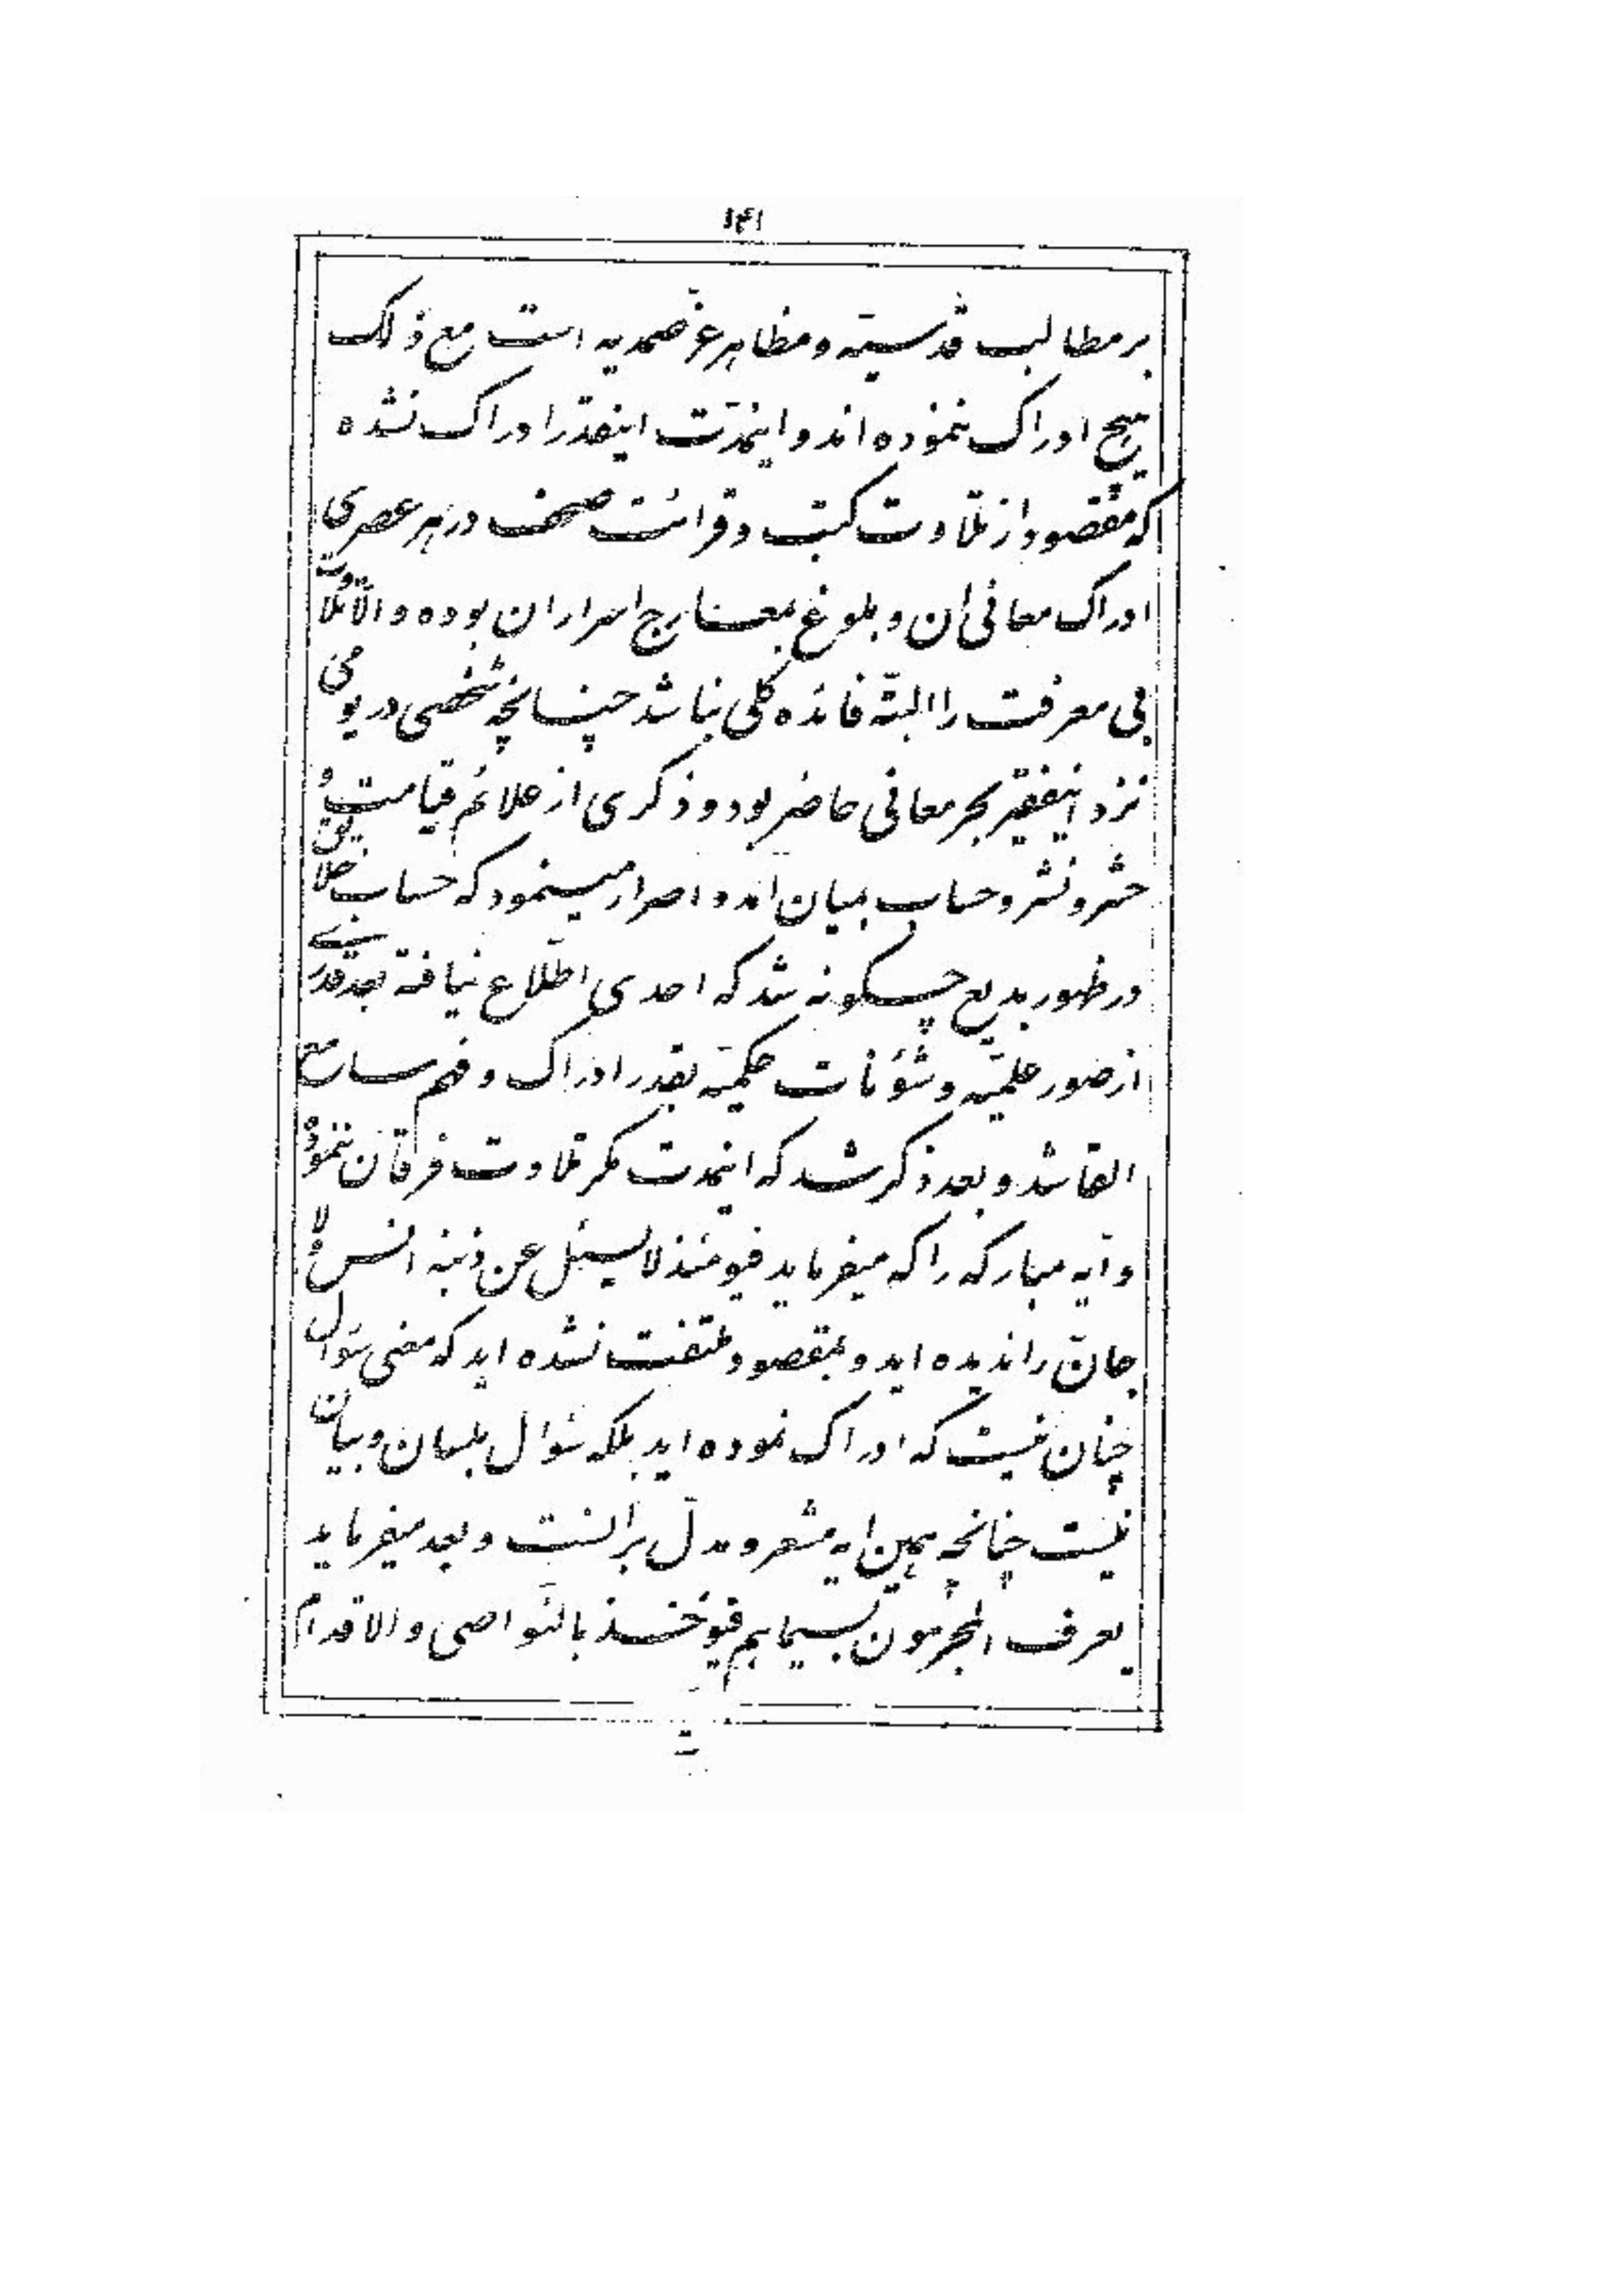 ١٤١
بر مطالب قدسیّه و مظاهر عزّ صمدیه است مع ذلک
هیچ ادراک ننموده‌اند و اینمدّت اینقدر ادراک نشده
که مقصود از تلاوت کتب و قرائت صحف در هر عصری
ادراک معانی آن و بلوغ بمعارج اسرار ان بوده و الّا تلاوت
بی معرفت را البتّه فائده کلی نباشد چنانچه شخصی در یومی
نزد اینفقیر بحر معانی حاضر بود و ذکری از علائم قیامت و
حشر و نشر و حساب بمیان آمد و اصرار مینمود که حساب خلایق
در ظهور بدیع چگونه شد که احدی اطّلاع نیافته بعد قدری
از صور علمیّه و شئونات حکمیّه بقدر ادراک و فهم سامع
القا شد و بعد ذکر شد که اینمدت مگر تلاوت فرقان ننموده
و آیه مبارکه را که میفرماید فیومئذ لا یسئل عن ذنبه انس و لا
جان را ندیده اید و بمقصود ملتفت نشده اید که معنی سؤال
چنان نیست که ادراک نموده اید بلکه سؤال بلسان و بیان
نیست چنانچه همین ایه مشعر و مدلّ بر آنست و بعد میفرماید
یعرف المجرمون بسیماهم فیوخذ بالنّواصی و الاقدام